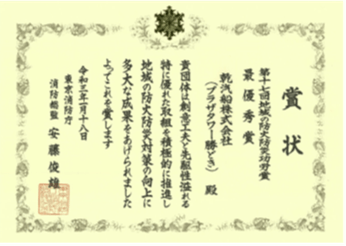 賞状
第十七回地域の防火防災功労賞
最優秀賞
乾汽船株式会社
(プラザタワー勝どき) 殿
貴団体は創意工夫と先駆性溢れる
特に優れた取組を積極的に推進し
地域の防火防災対策の向上に
多大な成果をあげられました
よってこれを賞します
令和三年一月十八日
東京消防庁
消防総監 安藤俊雄